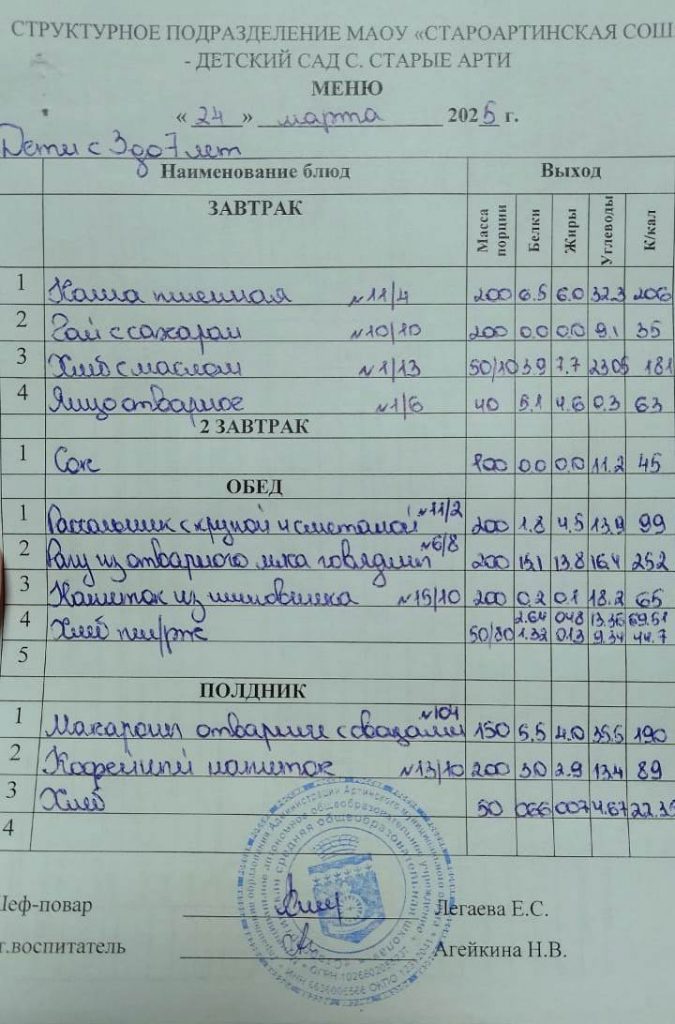 СТРУКТУРНОЕ ПОДРАЗДЕЛЕНИЕ МАОУ «СТАРОАРТИНСКАЯ СОШ
- ДЕТСКИЙ САД С. СТАРЫЕ АРТИ
МЕНЮ
« 24 » марта 2025 г.
Дети с 3 до 7 лет
Наименование блюд Выход
ЗАВТРАК Масса порции Белки Жиры Углеводы К/кал
1 Каша пшенная №11/4 200 6.5 6.0 32.3 206
2 Чай с сахаром №10/10 200 0.0 0.0 9.1 35
3 Хлеб с маслом №1/13 50/10 3.9 7.7 23.05 181
4 Яйцо отварное №1/6 40 5.1 4.6 0.3 63
2 ЗАВТРАК
1 Сок 100 0.0 0.0 11.2 45
ОБЕД
1 Рассольник с крупой и сметаной №11/2 200 1.8 4.5 13.9 99
2 Рагу из отварного мяса говядины №6/8 200 15.1 13.8 16.4 252
3 Напиток из шиповника №15/10 200 0.2 0.1 18.2 65
2.64 048 13.36 69.51
4 Хлеб пш/рж 50/30 1.32 0.13 9.34 44.7
5
ПОЛДНИК
1 Макароны отварные с овощами №104 150 5.5 4.0 35.5 190
2 Кофейный напиток №13/10 200 3.0 2.9 13.4 89
3 Хлеб 50 066 007 4.67 22.35
4
Шеф-повар Легаева Е.С.
т.воспитатель Агейкина Н.В.